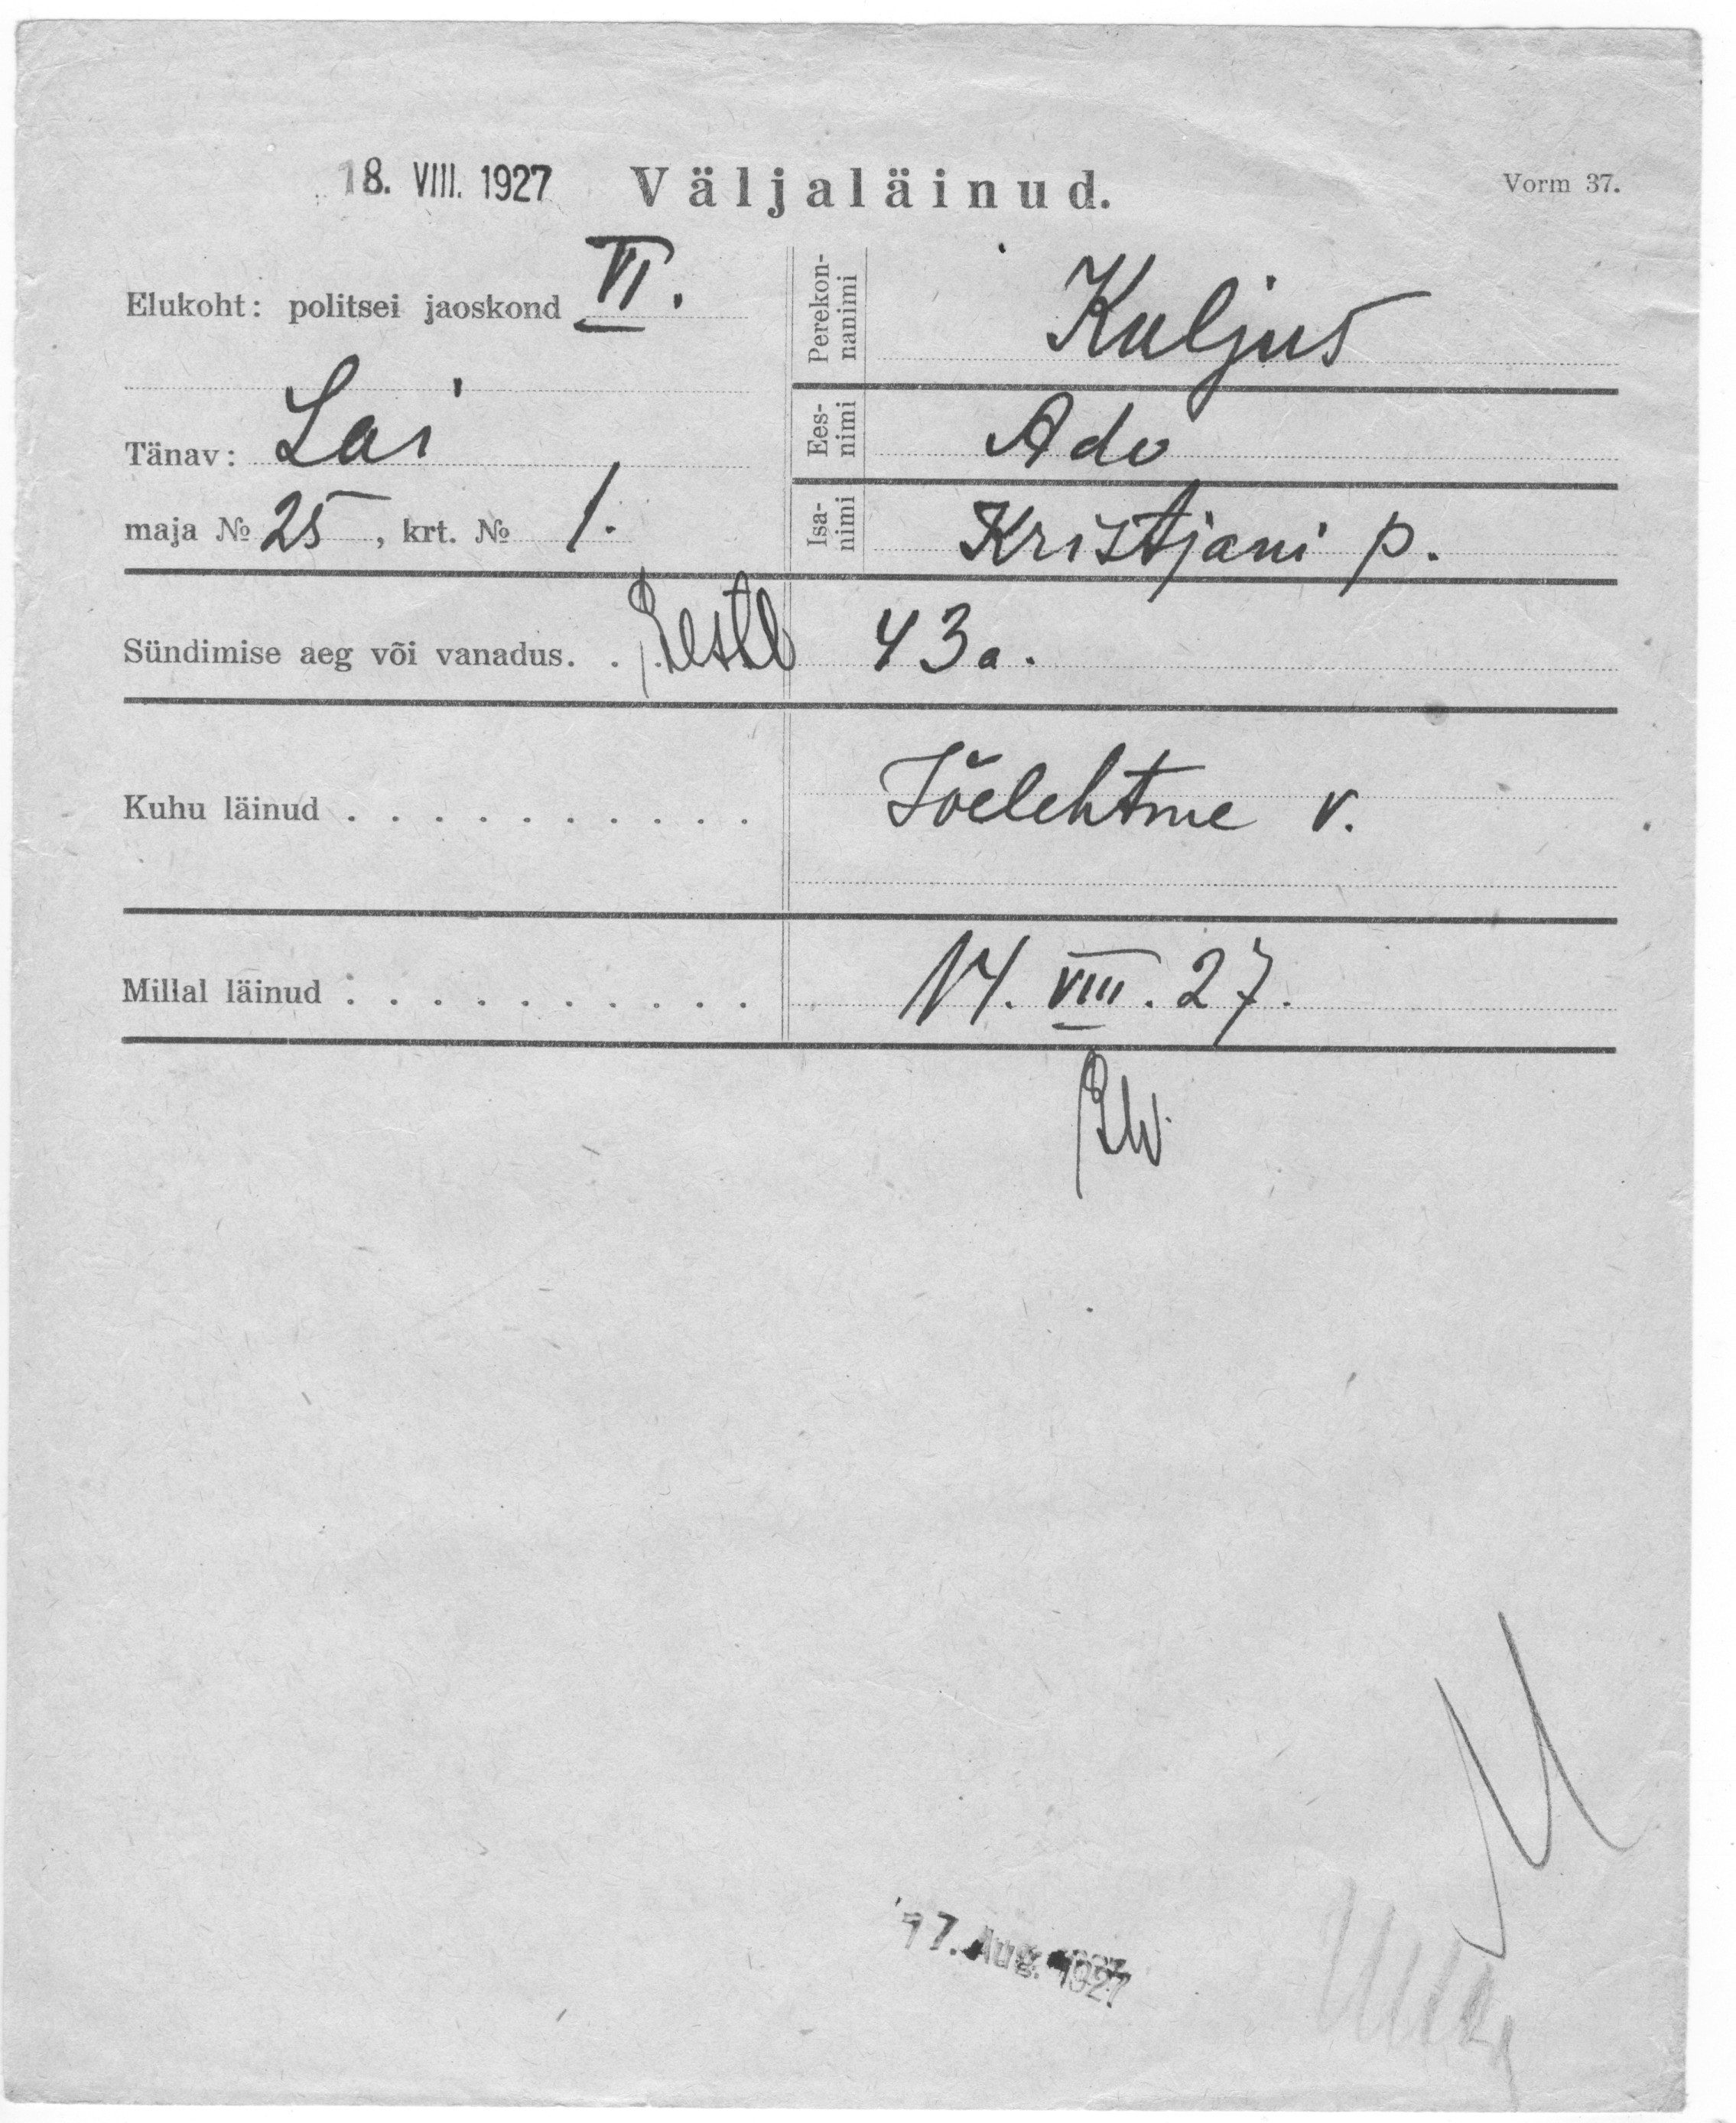 18. VIII. 1927 Väljaläinud. Vorm 37.
Elukoht: politsei jaoskond VI.
Tänav: Lai
maja № 25, krt. № 1.
Perekon-
nanimi
Kuljus
Ees-
nimi
Ado
Isa-
nimi
Kristjani p.
Sündimise aeg või vanadus. . 43 a.
Kuhu läinud . . . . . . . . . . Jõelehtme v.
Millal läinud . . . . . . . . . . 14. VIII. 27.
17. Aug. 1927